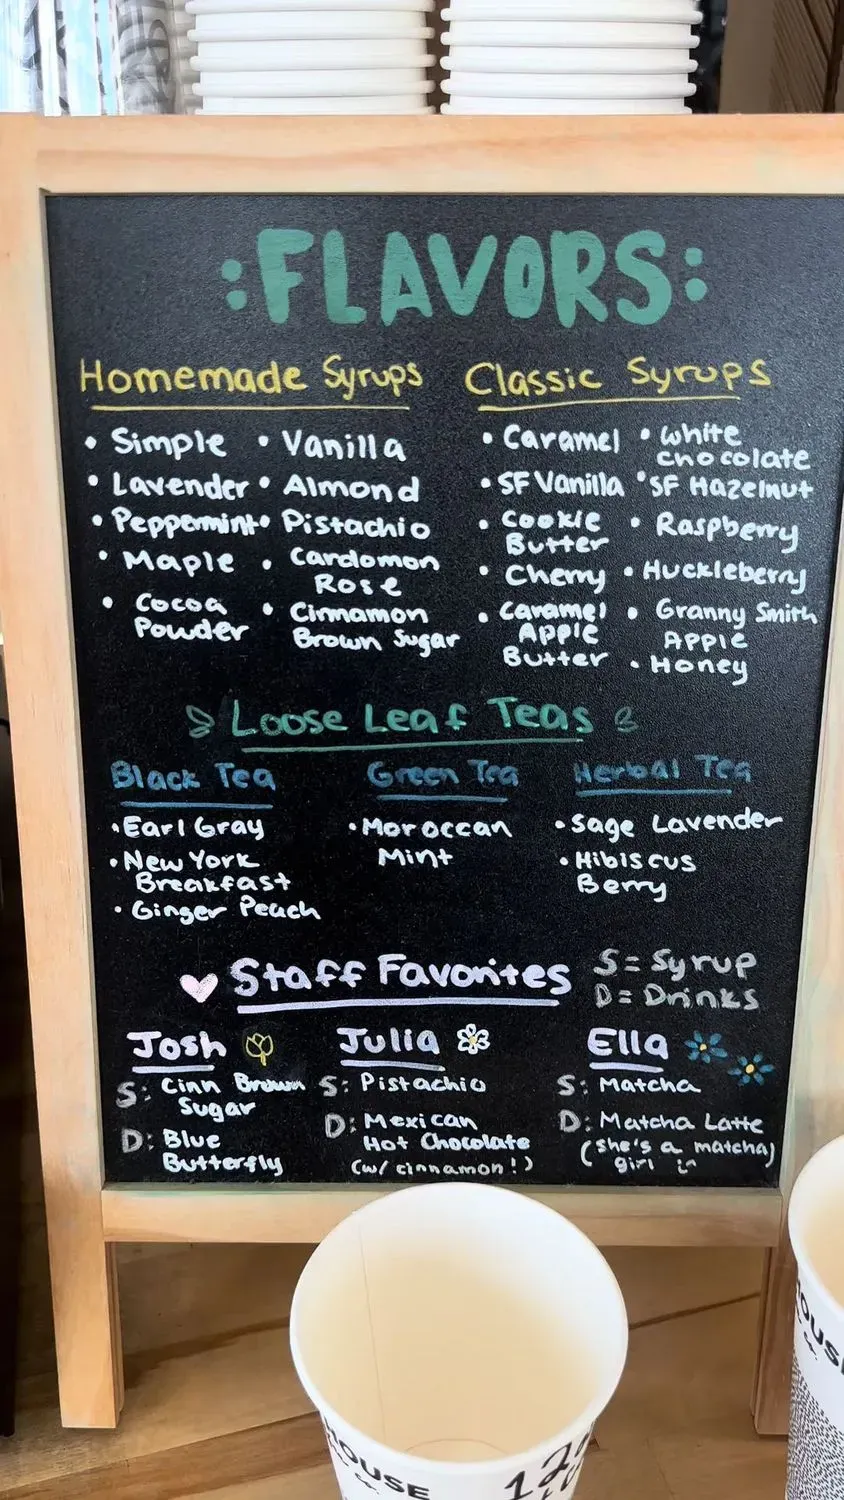 :FLAVORS:
Homemade Syrups
• Simple
• Lavender
• Peppermint
• Maple
• Cocoa
Powder
• Vanilla
• Almond
• Pistachio
• Cardomon
Rose
• Cinnamon
Brown Sugar
Classic Syrups
• Caramel
• SF Vanilla
• Cookie
Butter
• Cherry
• Caramel
Apple
Butter
• White
Chocolate
• SF Hazelnut
• Raspberry
• Huckleberry
• Granny Smith
Apple
• Honey
Loose Leaf Teas
Black Tea
• Earl Gray
• New York
Breakfast
• Ginger Peach
Green Tea
• Moroccan
Mint
Herbal Tea
• Sage Lavender
• Hibiscus
Berry
Staff Favorites
S = Syrup
D = Drinks
Josh
S: Cinn Brown
Sugar
D: Blue
Butterfly
Julia
S: Pistachio
D: Mexican
Hot Chocolate
(w/ cinnamon!)
Ella
S: Matcha
D: Matcha Latte
(she's a matcha)
girl :)
HOUSE